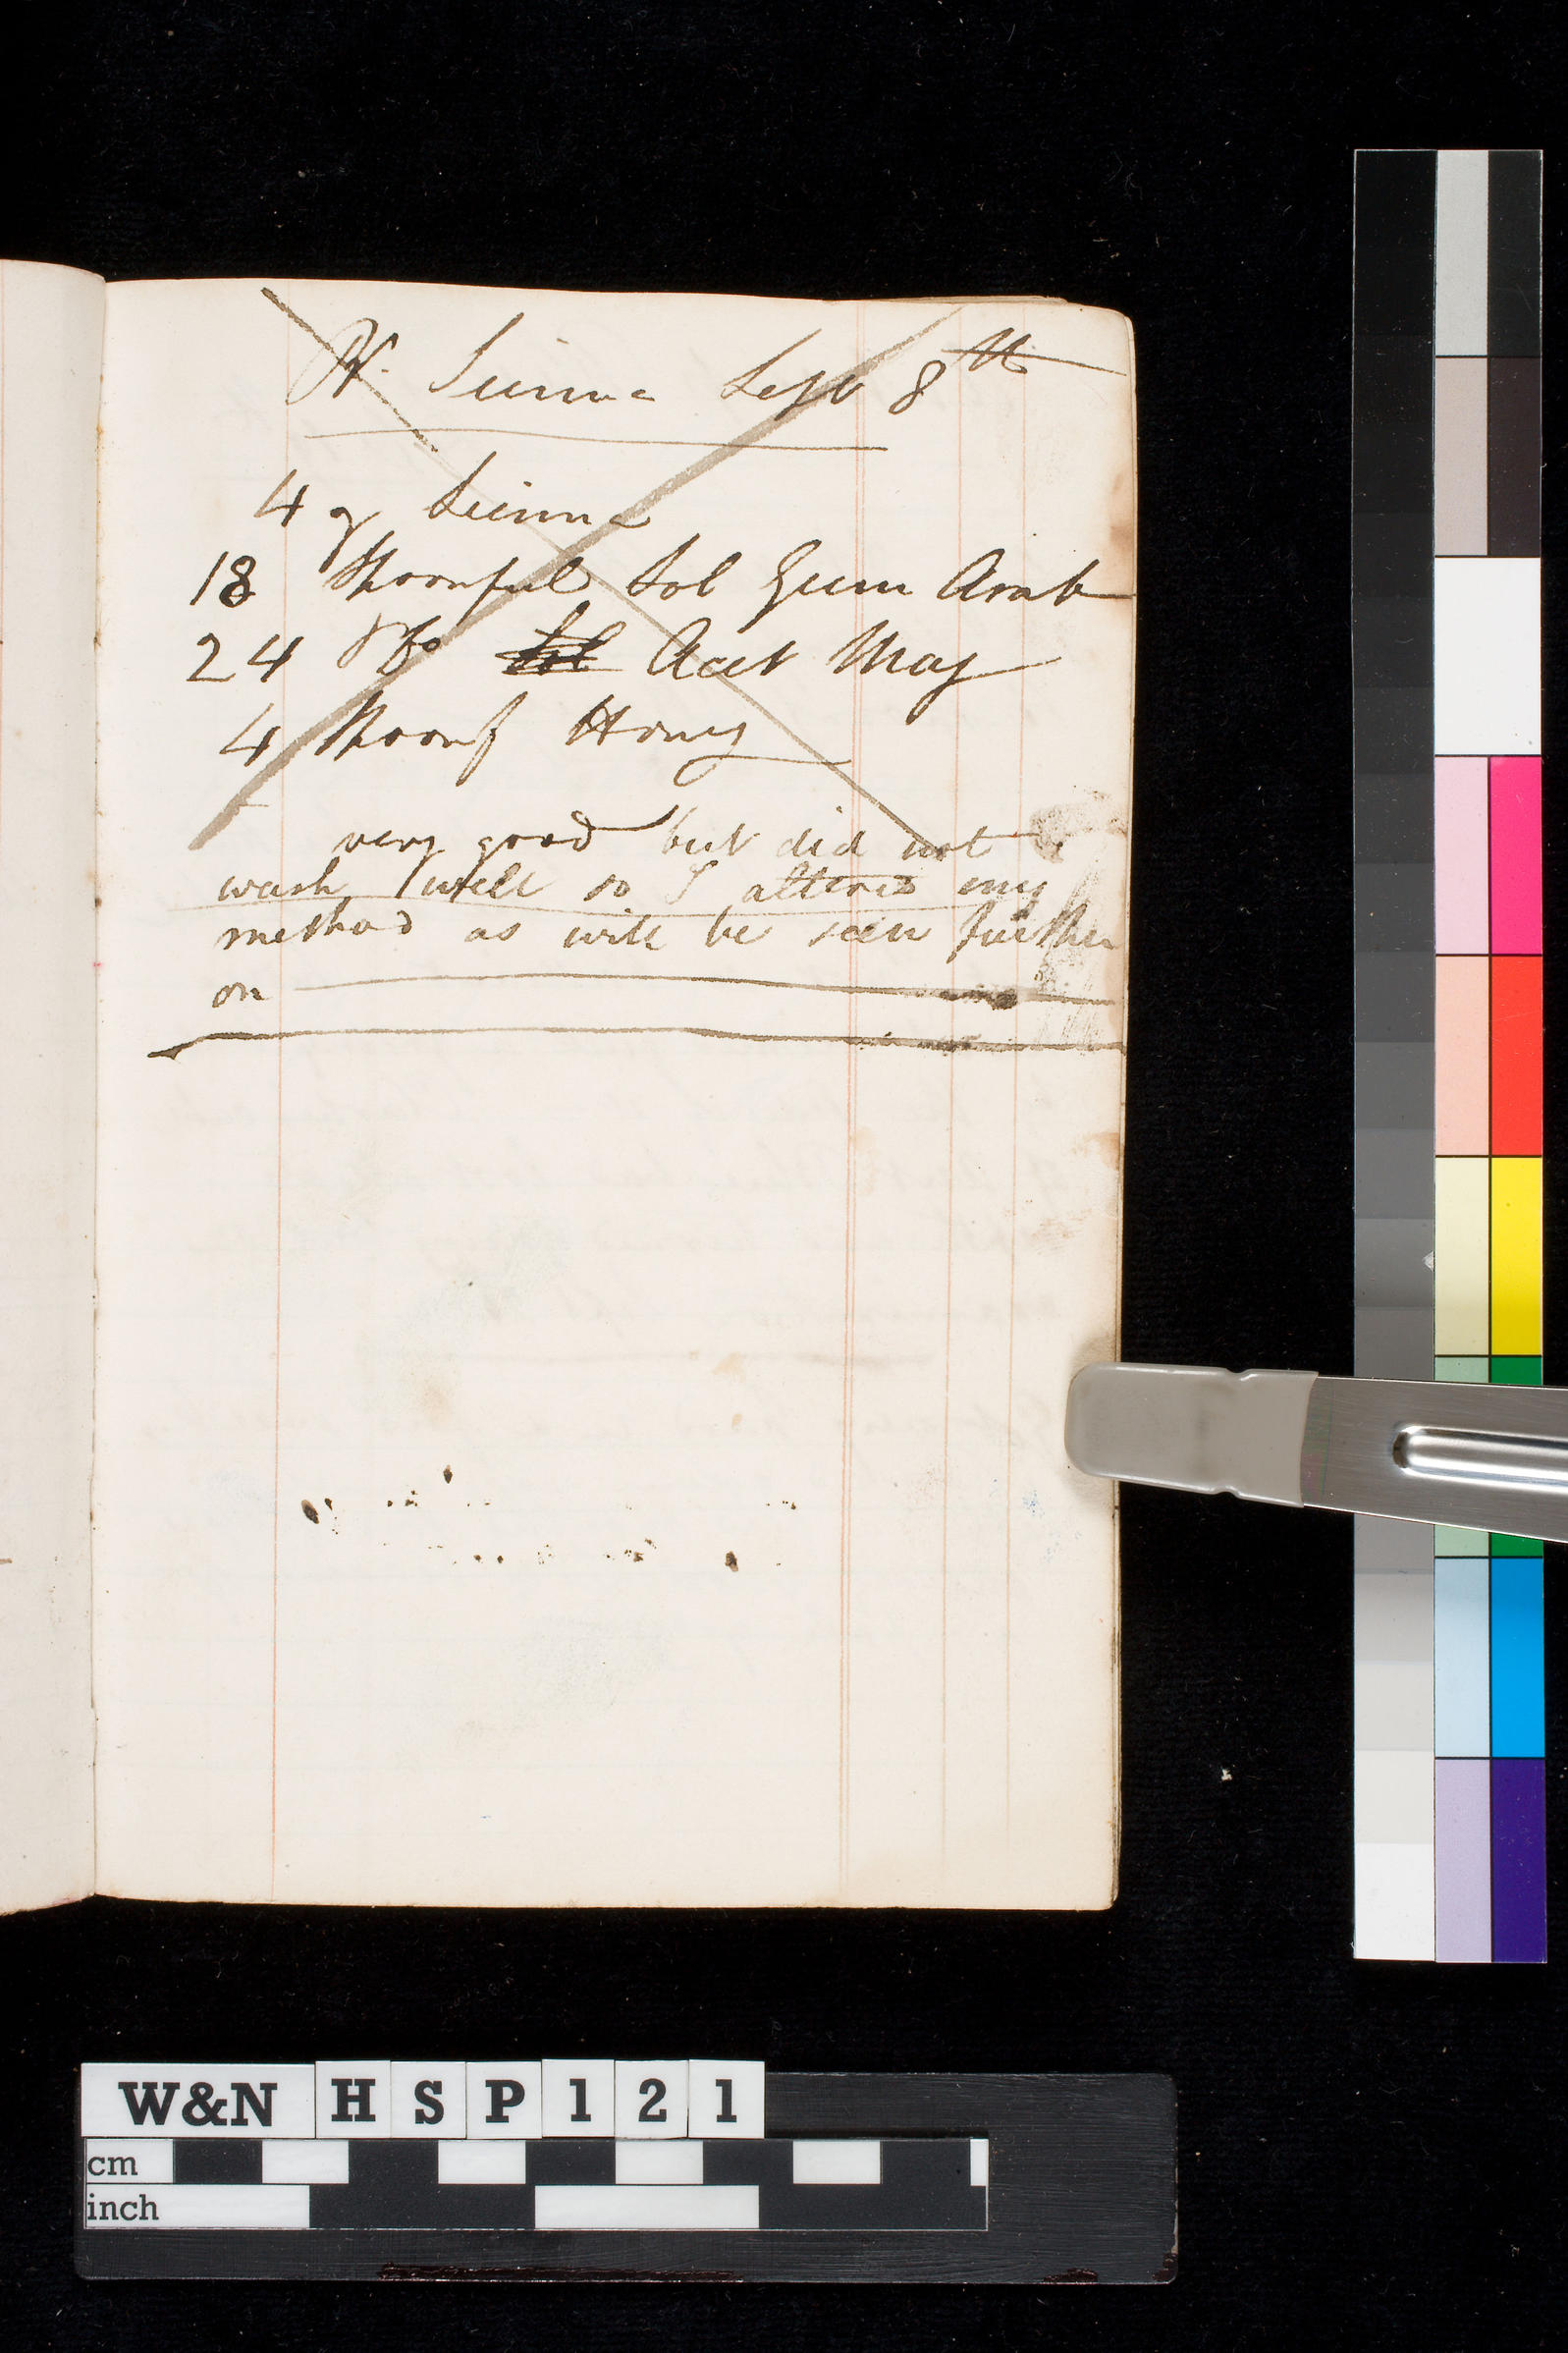 Sienna Sep 8th
4 Sienna
18 Spoonful Sol Gum Arab
24 Do Sol Acet Mag
4 Spoonf Honey
very good but did not
wash well so I altered my
method as will be seen further
on
W&N HSP121
cm
inch